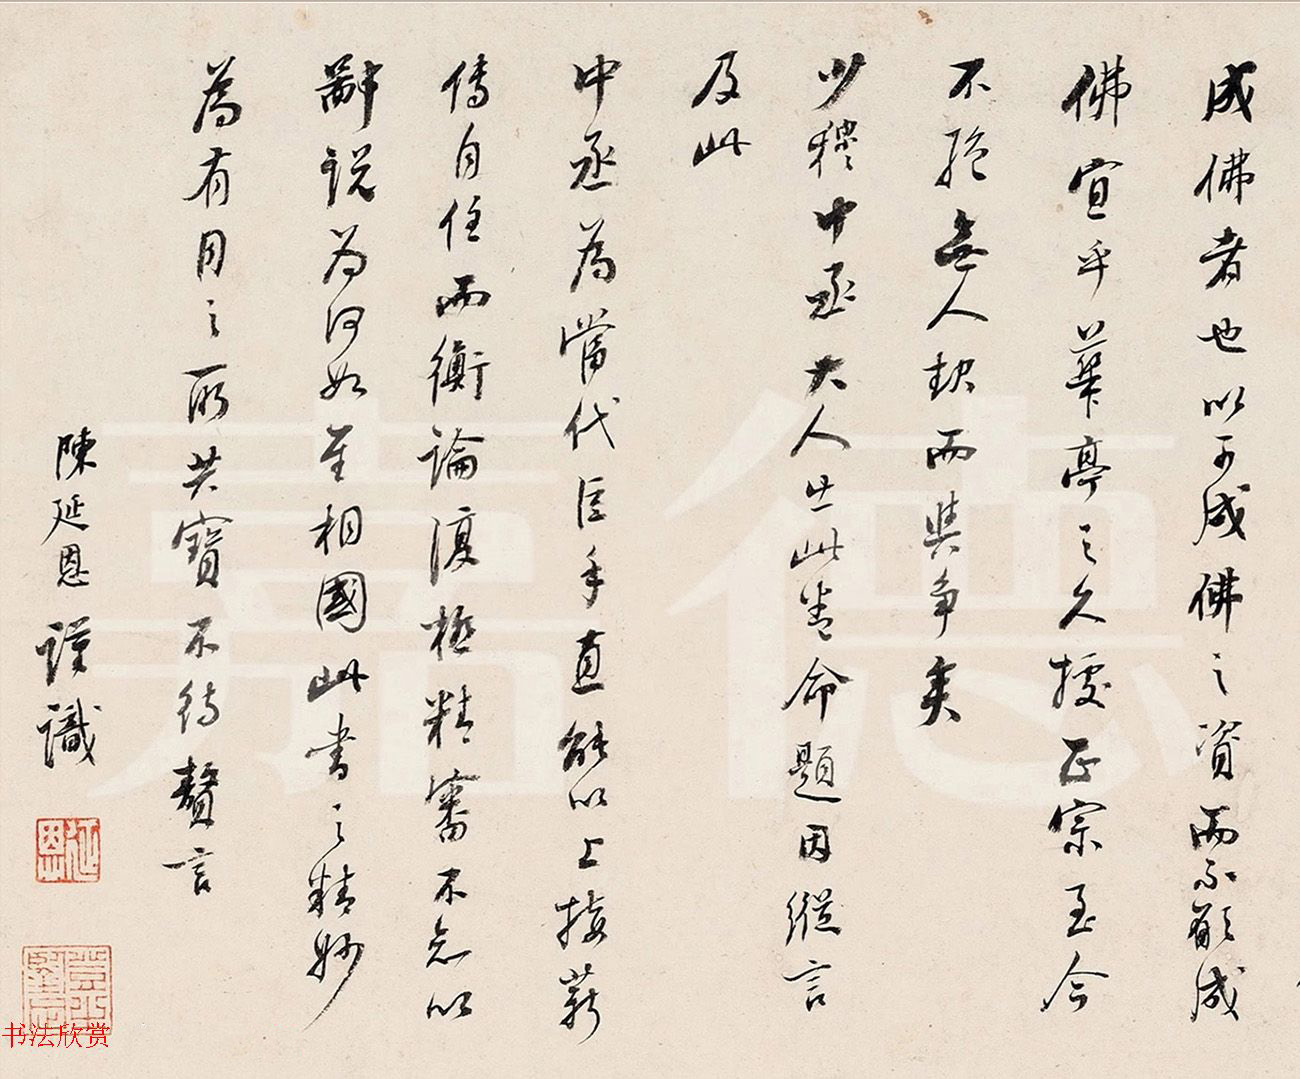 成佛者也以可成佛之資而不願成
佛宜乎華亭之久據正宗至今
不絕無人起而與争矣
少穆中丞大人出此卷命題因縱言
及此
中丞為當代巨手直能以上接薪
傳自任而衡論復極精審不知以
鄙說為何如至相國此書之精妙
為有目之所共寶不待贅言
陳延恩謹識
延恩
嘉德
书法欣赏